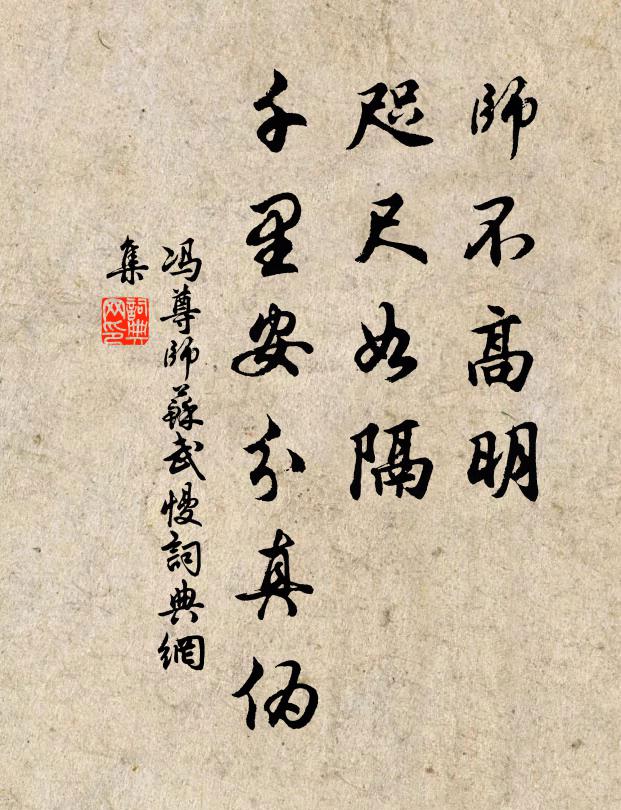 師不高明
咫尺如隔
千里安分真偽
冯尊師蘇武慢詞典網
集
詞典
网